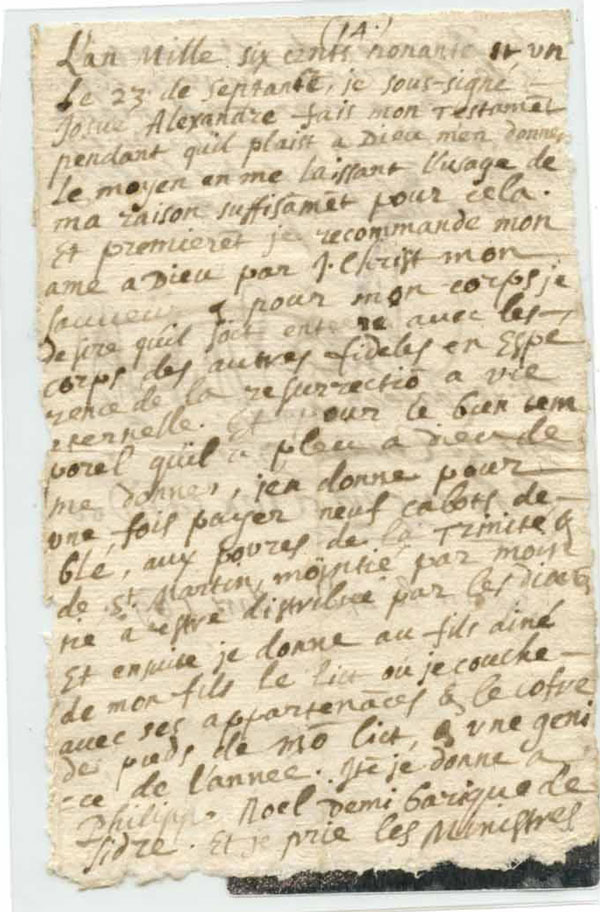 (14.)
L'an Mille six cents nonante et un
Le 23 de Septanbe, je sous-signé
Josué Alexandre fais mon Testamēt
pendant qu'il plaist a Dieu m'en donner
Le moyen en me laissant l'usage de
ma raison suffisāmēt pour cela.
Et premierēt je recommande mon
ame a Dieu par J. Christ mon
sauveur & pour mon corps je
desire qu'il soit enterré avec les
corps des autres fideles en Espe
rence de la resurrectiō a vie
eternelle. Et pour le bien tem
porel qu'il a pleu a Dieu de
me donner, j'en donne pour
une fois payer neuf cabots de
blé, aux povres de la Trinité &
de St. Martin, mointié par moin
tié a estre distribué par les
Et ensuite je donne au fils ainé
de mon fils le lict ou je couche
avec ses appartenāces & le cofre
de pieds de mō lict, & une geni
-ce de l'annee. Itē je donne a
Philippe Noel Demi barique de
sidre. Et je prie les Ministres